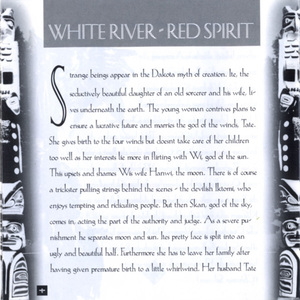 WHITE RIVER - RED SPIRIT
Strange beings appear in the Dakota myth of creation. Ite, the
seductively beautiful daughter of an old sorcerer and his wife, li-
ves underneath the earth. The young woman contrives plans to
ensure a lucrative future and marries the god of the winds, Tate.
She gives birth to the four winds but doesnt take care of her children
too well as her interests lie more in flirting with Wi, god of the sun.
This upsets and shames Wis wife Hanwi, the moon. There is of course
a trickster pulling strings behind the scenes - the devilish Iktomi, who
enjoys tempting and ridiculing people. But then Skan, god of the sky,
comes in, acting the part of the authority and judge. As a severe pu-
nishment he separates moon and sun. Ites pretty face is split into an
ugly and beautiful half. Furthermore she has to leave her family after
having given premature birth to a little whirlwind. Her husband Tate